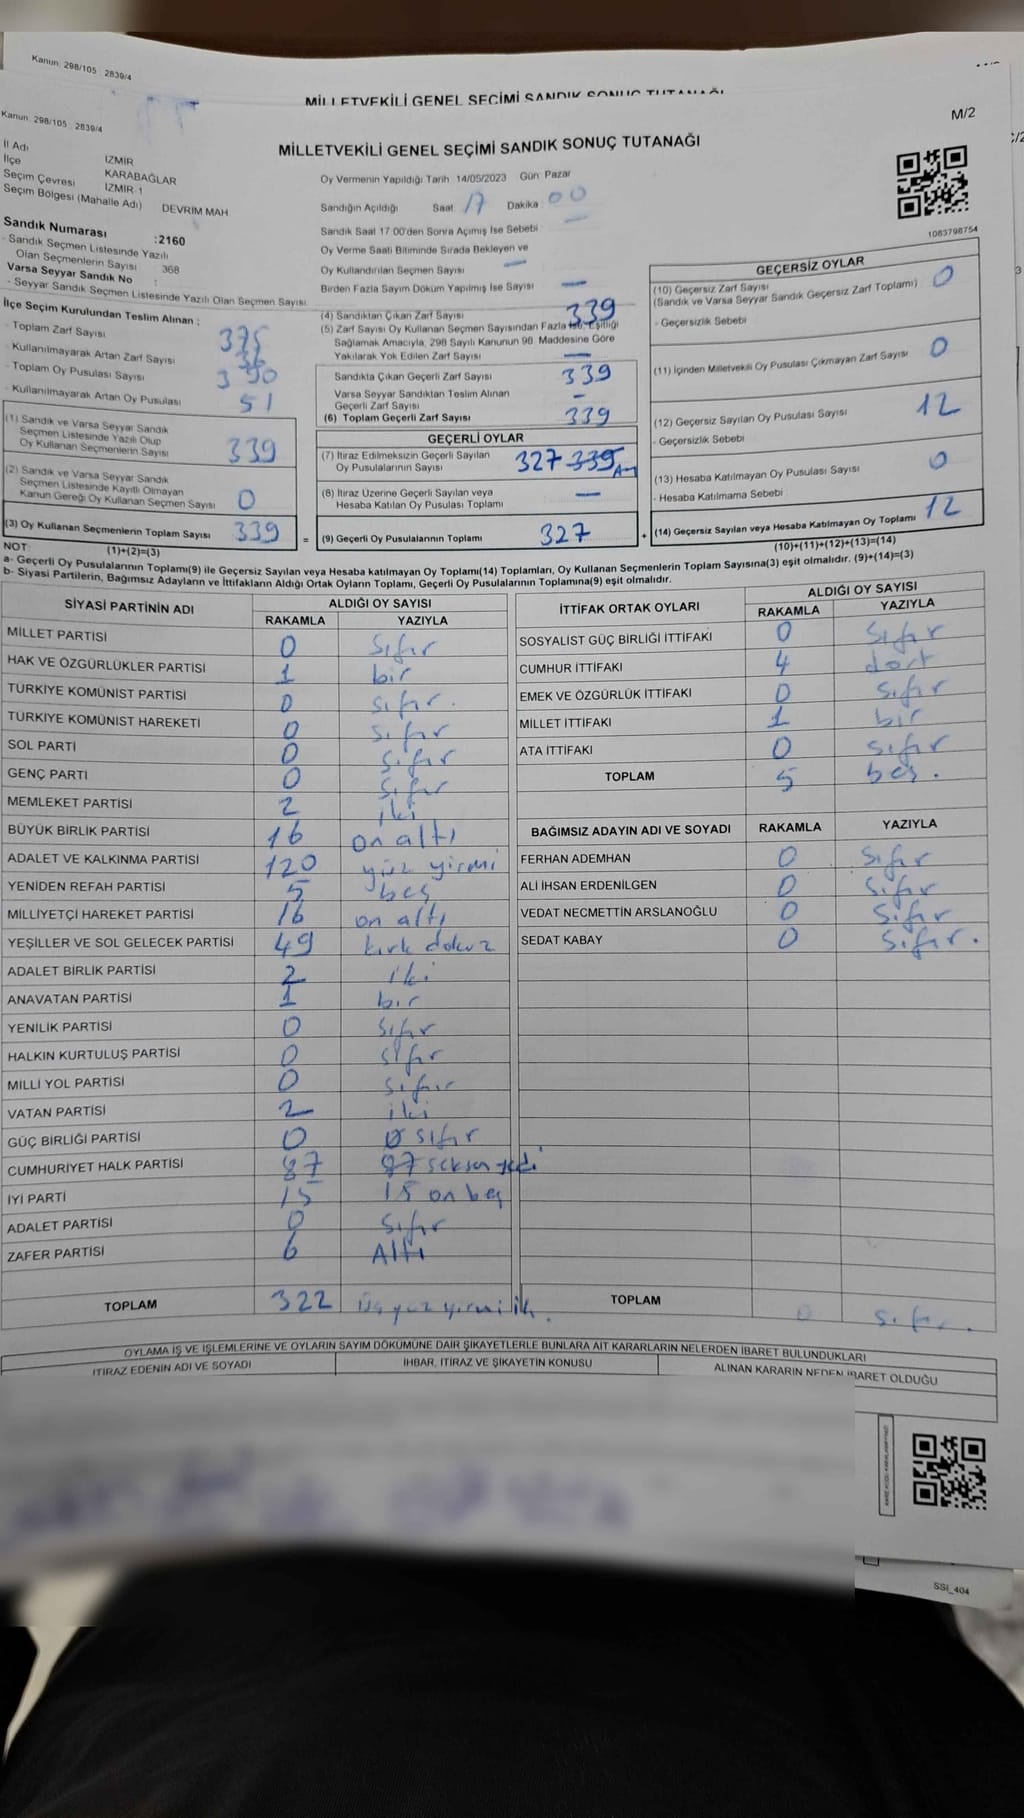 Kanun: 298/105 : 2839/4
MİLLETVEKİLİ GENEL SEÇİMİ SANDIK SONUÇ TUTANAĞI
Kanun: 298/105 : 2839/4
M/2
MİLLETVEKİLİ GENEL SEÇİMİ SANDIK SONUÇ TUTANAĞI
İl Adı İZMİR
İlçe KARABAĞLAR
Seçim Çevresi İZMİR-1
Seçim Bölgesi (Mahalle Adı) DEVRİM MAH
Oy Vermenin Yapıldığı Tarih 14/05/2023 Gün: Pazar
Sandığın Açıldığı Saat 17 Dakika 00
Sandık Saat 17 00'den Sonra Açımış İse Sebebi
Oy Verme Saati Bitiminde Sırada Bekleyen ve
Oy Kullandırılan Seçmen Sayısı —
Birden Fazla Sayım Döküm Yapılmış İse Sayısı —
1083798754
Sandık Numarası :2160
- Sandık Seçmen Listesinde Yazılı
Olan Seçmenlerin Sayısı : 368
Varsa Seyyar Sandık No :
- Seyyar Sandık Seçmen Listesinde Yazılı Olan Seçmen Sayısı
İlçe Seçim Kurulundan Teslim Alınan :
- Toplam Zarf Sayısı 375
- Kullanılmayarak Artan Zarf Sayısı
- Toplam Oy Pusulası Sayısı 390
- Kullanılmayarak Artan Oy Pusulası 51
(1) Sandık ve Varsa Seyyar Sandık
Seçmen Listesinde Yazılı Olup
Oy Kullanan Seçmenlerin Sayısı 339
(2) Sandık ve Varsa Seyyar Sandık
Seçmen Listesinde Kayıtlı Olmayan
Kanun Gereği Oy Kullanan Seçmen Sayısı 0
(3) Oy Kullanan Seçmenlerin Toplam Sayısı 339
(1)+(2)=(3)
(4) Sandıktan Çıkan Zarf Sayısı 339
(5) Zarf Sayısı Oy Kullanan Seçmen Sayısından Fazla İse, Eşitliği
Sağlamak Amacıyla, 298 Sayılı Kanunun 98. Maddesine Göre
Yakılarak Yok Edilen Zarf Sayısı —
Sandıkta Çıkan Geçerli Zarf Sayısı 339
Varsa Seyyar Sandıktan Teslim Alınan
Geçerli Zarf Sayısı -
(6) Toplam Geçerli Zarf Sayısı 339
GEÇERLİ OYLAR
(7) İtiraz Edilmeksizin Geçerli Sayılan
Oy Pusulalarının Sayısı 327 339
(8) İtiraz Üzerine Geçerli Sayılan veya
Hesaba Katılan Oy Pusulası Toplamı —
= (9) Geçerli Oy Pusulalarının Toplamı 327 +
GEÇERSİZ OYLAR
(10) Geçersiz Zarf Sayısı 0
(Sandık ve Varsa Seyyar Sandık Geçersiz Zarf Toplamı)
- Geçersizlik Sebebi
(11) İçinden Milletvekili Oy Pusulası Çıkmayan Zarf Sayısı 0
(12) Geçersiz Sayılan Oy Pusulası Sayısı 12
- Geçersizlik Sebebi
(13) Hesaba Katılmayan Oy Pusulası Sayısı 0
- Hesaba Katılmama Sebebi
(14) Geçersiz Sayılan veya Hesaba Katılmayan Oy Toplamı 12
(10)+(11)+(12)+(13)=(14)
NOT:
a- Geçerli Oy Pusulalarının Toplamı(9) ile Geçersiz Sayılan veya Hesaba katılmayan Oy Toplamı(14) Toplamları, Oy Kullanan Seçmenlerin Toplam Sayısına(3) eşit olmalıdır. (9)+(14)=(3)
b- Siyasi Partilerin, Bağımsız Adayların ve İttifakların Aldığı Ortak Oyların Toplamı, Geçerli Oy Pusulalarının Toplamına(9) eşit olmalıdır.
SİYASİ PARTİNİN ADI ALDIĞI OY SAYISI
RAKAMLA YAZIYLA
MİLLET PARTİSİ 0 Sıfır
HAK VE ÖZGÜRLÜKLER PARTİSİ 1 bir
TÜRKİYE KOMÜNİST PARTİSİ 0 sıfır.
TÜRKİYE KOMÜNİST HAREKETİ 0 sıfır
SOL PARTİ 0 sıfır
GENÇ PARTİ 0 sıfır
MEMLEKET PARTİSİ 2 iki
BÜYÜK BİRLİK PARTİSİ 16 on altı
ADALET VE KALKINMA PARTİSİ 120 yüz yirmi
YENİDEN REFAH PARTİSİ 5 beş
MİLLİYETÇİ HAREKET PARTİSİ 16 on altı
YEŞİLLER VE SOL GELECEK PARTİSİ 49 kırk dokuz
ADALET BİRLİK PARTİSİ 2 iki
ANAVATAN PARTİSİ 1 bir
YENİLİK PARTİSİ 0 sıfır
HALKIN KURTULUŞ PARTİSİ 0 sıfır
MİLLİ YOL PARTİSİ 0 sıfır
VATAN PARTİSİ 2 iki
GÜÇ BİRLİĞİ PARTİSİ 0 0 sıfır
CUMHURİYET HALK PARTİSİ 87 87 seksen yedi
İYİ PARTİ 15 15 on beş
ADALET PARTİSİ 0 sıfır
ZAFER PARTİSİ 6 Altı
TOPLAM 322 Üç yüz yirmi iki.
İTTİFAK ORTAK OYLARI ALDIĞI OY SAYISI
RAKAMLA YAZIYLA
SOSYALİST GÜÇ BİRLİĞİ İTTİFAKI 0 Sıfır
CUMHUR İTTİFAKI 4 dört
EMEK VE ÖZGÜRLÜK İTTİFAKI 0 sıfır
MİLLET İTTİFAKI 1 bir
ATA İTTİFAKI 0 sıfır
TOPLAM 5 beş.
BAĞIMSIZ ADAYIN ADI VE SOYADI RAKAMLA YAZIYLA
FERHAN ADEMHAN 0 sıfır
ALİ İHSAN ERDENİLGEN 0 sıfır
VEDAT NECMETTİN ARSLANOĞLU 0 sıfır
SEDAT KABAY 0 sıfır.
TOPLAM 0 sıfır.
OYLAMA İŞ VE İŞLEMLERİNE VE OYLARIN SAYIM DÖKÜMÜNE DAİR ŞİKAYETLERLE BUNLARA AİT KARARLARIN NELERDEN İBARET BULUNDUKLARI
İTİRAZ EDENİN ADI VE SOYADI İHBAR, İTİRAZ VE ŞİKAYETİN KONUSU ALINAN KARARIN NEDEN İBARET OLDUĞU
SSİ_404